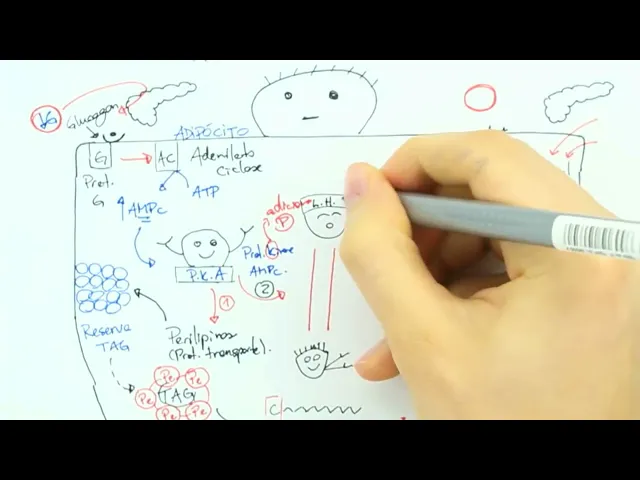 ↓G
Glucagon
ADIPÓCITO
G
AC
Adenilato
ciclase
Prot.
G
ATP
↑ AMPc
adiciona
P
L.H.
Prot. kinase
AMPc.
P.K.A
1
2
Reserva
TAG
Perilipinas
(Prot. transporte).
Pe
Pe
Pe
TAG
Pe
Pe
C